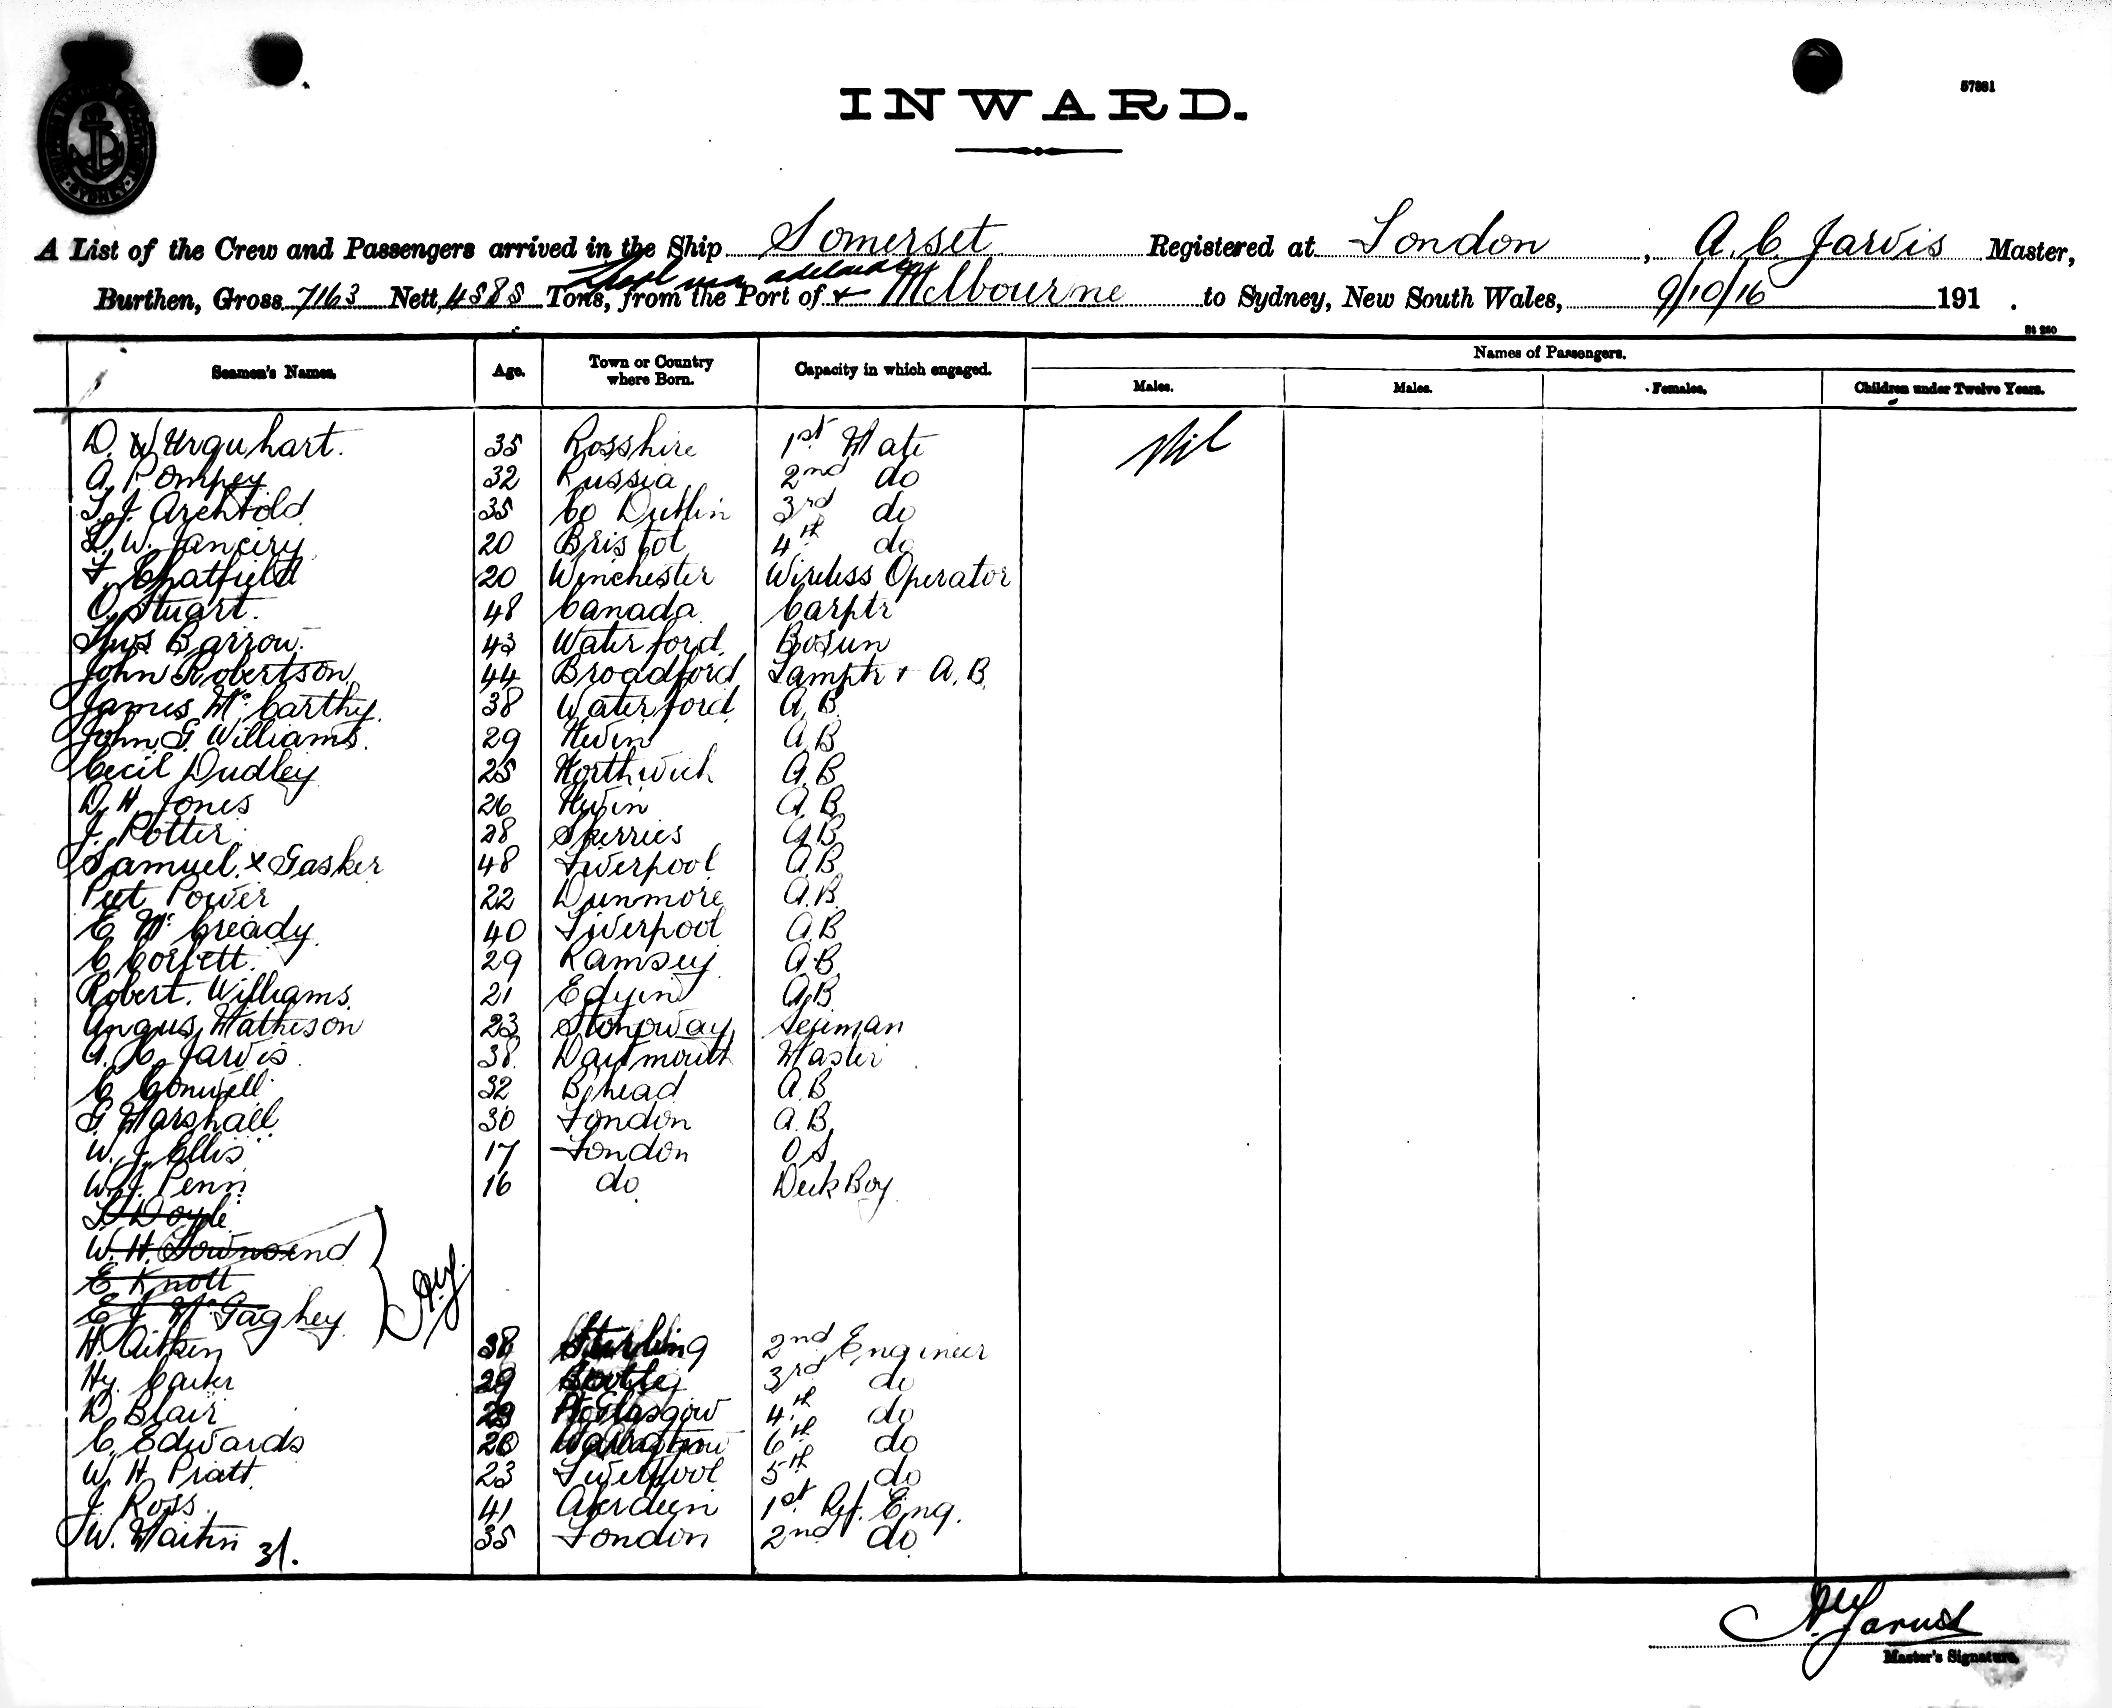 57381
INWARD.
A List of the Crew and Passengers arrived in the Ship Somerset Registered at London, A. C. Jarvis Master,
Burthen, Gross 7163 Nett, 4585 Tons, from the Port of + Melbourne to Sydney, New South Wales, 9/10/16 191 .
Seamen's Names. Age. Town or Country where Born. Capacity in which engaged. Names of Passengers.
Males. Males. Females. Children under Twelve Years.
D. W Urquhart. 35 Rosshire 1st Mate Nil
A. Pompey 32 Russia 2nd do
T. J. Archbold 35 Co Dublin 3rd do
L. W. 20 Bristol 4th do
F. Chatfield 20 Winchester Wireless Operator
O. Stuart. 48 Canada Carptr
Thos Barrow 43 Waterford Bosun
John Robertson 44 Broadford Lamptr + A.B.
James Mc Carthy 38 Waterford A.B.
John G. Williams. 29 Nevin A.B
Cecil Dudley 25 Northwich A.B
D. H. Jones 26 Nevin A.B
J. Potter 28 Skerries A.B
Samuel x Gasker 48 Liverpool A.B
Pat Power 22 Dunmore A.B.
E Mc Cready 40 Liverpool A.B
C Corlett. 29 Ramsey A.B
Robert. Williams 21 A.B
Angus Matheson 23 Stornoway Seaman
A. C. Jarvis 38 Dartmouth Master
C Conwell 32 B'head A.B
G Marshall 30 London A.B.
W. J. Ellis 17 London O S
W. J. Penn 16 do Deck Boy
Doyle
W. H. Townsend
E Knott
E J. Mc Gaghey
H. Aitken 38 Sterling 2nd Engineer
Hy. Carter 29 Bootle 3rd do
D. Blair Pt Glasgow 4th do
C. Edwards 6th do
W. H. Pratt 23 Liverpool 5th do
J. Ross 41 Aberdeen 1st Ref. Eng.
W. Martin 35 London 2nd do
31.
Jarvis
Master's Signature.